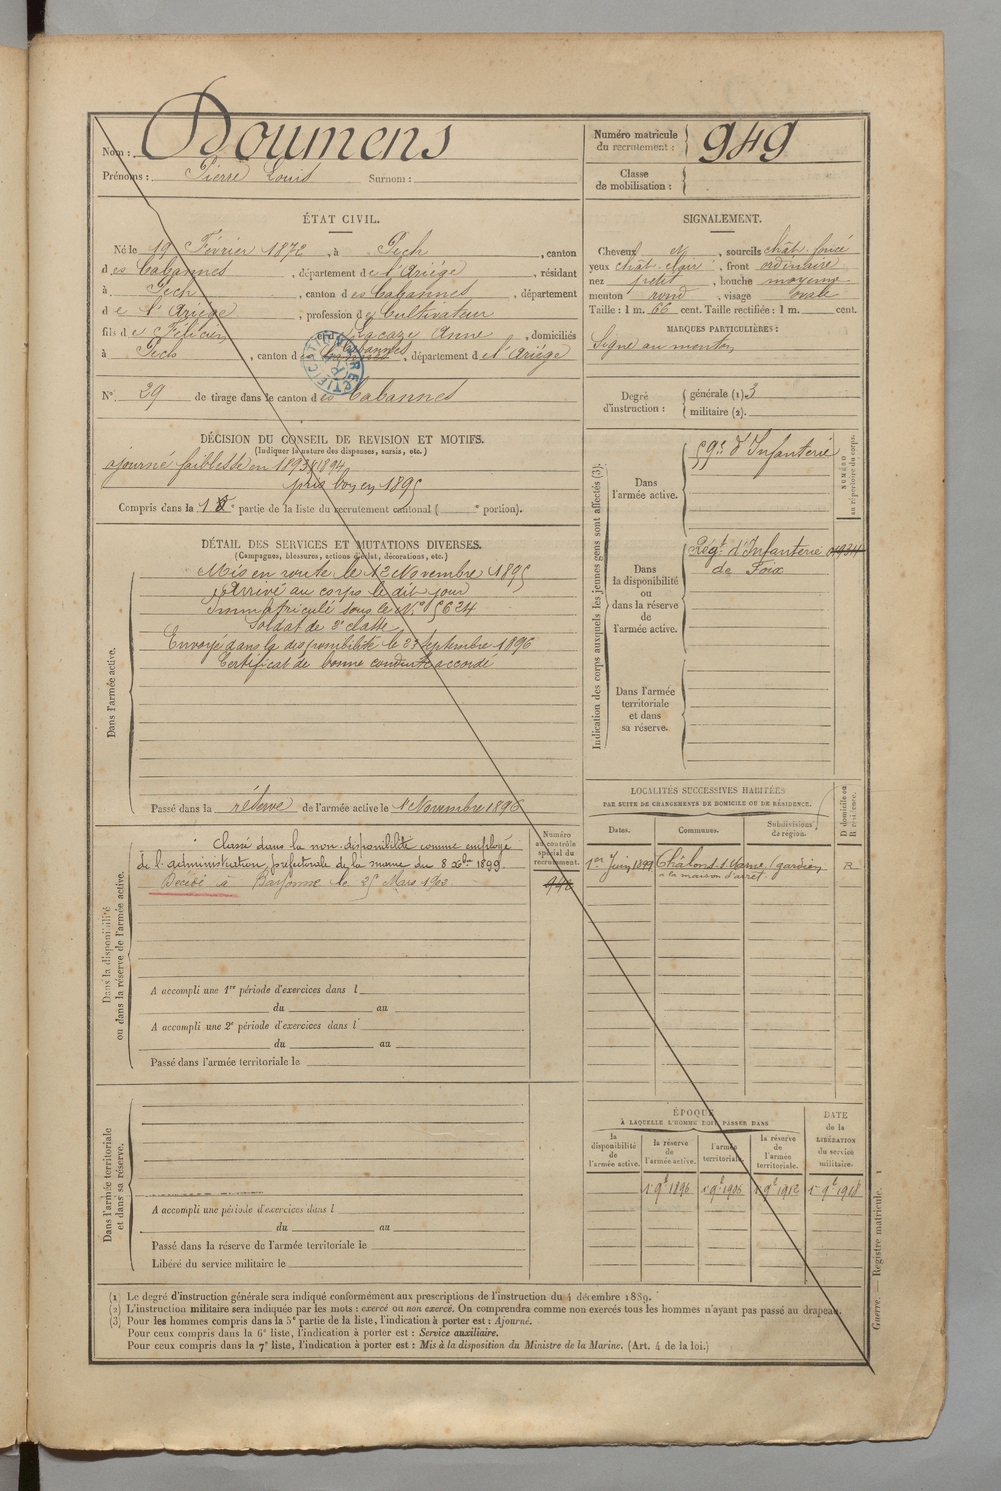 Nom : Doumens
Prénoms : Pierre Louis Surnom :
Numéro matricule du recrutement : 949
Classe de mobilisation :
ÉTAT CIVIL.
Né le 19 Février 1872, à Pech, canton
des Cabannes, département de l'Ariège, résidant
à Pech, canton des Cabannes, département
de l'Ariège, profession de Cultivateur
fils de Félicien et de Lacaze Anne, domiciliés
à Pech, canton des Cabannes, département de l'Ariège
N° 29 de tirage dans le canton des Cabannes
SIGNALEMENT.
Cheveux, sourcils chât. foncé
yeux chât. clair, front ordinaire
nez petit, bouche moyenne
menton rond, visage ovale
Taille : 1 m. 66 cent. Taille rectifiée : 1 m. cent.
MARQUES PARTICULIÈRES :
Signe au menton
Degré d'instruction : générale (1) 3
militaire (2).
DÉCISION DU CONSEIL DE REVISION ET MOTIFS.
(Indiquer la nature des dispenses, sursis, etc.)
ajourné faiblesse en 1893 & 1894
pris bon en 1895
Compris dans la 1e partie de la liste du recrutement cantonal ( e portion).
DÉTAIL DES SERVICES ET MUTATIONS DIVERSES.
(Campagnes, blessures, actions d'éclat, décorations, etc.)
Dans l'armée active.
Mis en route le 12 Novembre 1895
Arrivé au corps le dit jour
Immatriculé sous le N° 5624
Soldat de 2e classe
Envoyé dans la disponibilité le 23 Septembre 1896
Certificat de bonne conduite accordé
Passé dans la réserve de l'armée active le 1 Novembre 1896
Indication des corps auxquels les jeunes gens sont affectés (3).
NUMÉRO au répertoire du corps.
Dans l'armée active.
59e d'Infanterie
Dans la disponibilité ou dans la réserve de l'armée active.
Régt d'Infanterie 01934
de Foix
Dans l'armée territoriale et dans sa réserve.
Dans la disponibilité ou dans la réserve de l'armée active.
Numéro au contrôle spécial du recrutement.
Classé dans la non-disponibilité comme employé
de l'administration préfectorale de la marne du 8 Xbre 1899.
Décédé à Bayonne le 25 Mars 1903
A accompli une 1re période d'exercices dans l
du au
A accompli une 2e période d'exercices dans l
du au
Passé dans l'armée territoriale le
LOCALITÉS SUCCESSIVES HABITÉES
PAR SUITE DE CHANGEMENTS DE DOMICILE OU DE RÉSIDENCE.
Dates. Communes. Subdivisions de région. D domicile ou R résidence.
1er Juin 1899 Châlons s Marne (gardien R
à la maison d'arrêt.
Dans l'armée territoriale et dans sa réserve.
A accompli une période d'exercices dans l
du au
Passé dans la réserve de l'armée territoriale le
Libéré du service militaire le
ÉPOQUE
À LAQUELLE L'HOMME DOIT PASSER DANS
la disponibilité de l'armée active.
la réserve de l'armée active.
l'armée territoriale.
la réserve de l'armée territoriale.
DATE de la LIBÉRATION du service militaire.
1er 9bre 1896 1er 9bre 1906 1er 9bre 1912 1er 9bre 1918
(1) Le degré d'instruction générale sera indiqué conformément aux prescriptions de l'instruction du 4 décembre 1889.
(2) L'instruction militaire sera indiquée par les mots : exercé ou non exercé. On comprendra comme non exercés tous les hommes n'ayant pas passé au drapeau.
(3) Pour les hommes compris dans la 5e partie de la liste, l'indication à porter est : Ajourné.
Pour ceux compris dans la 6e liste, l'indication à porter est : Service auxiliaire.
Pour ceux compris dans la 7e liste, l'indication à porter est : Mis à la disposition du Ministre de la Marine. (Art. 4 de la loi.)
Guerre. — Registre matricule. 1